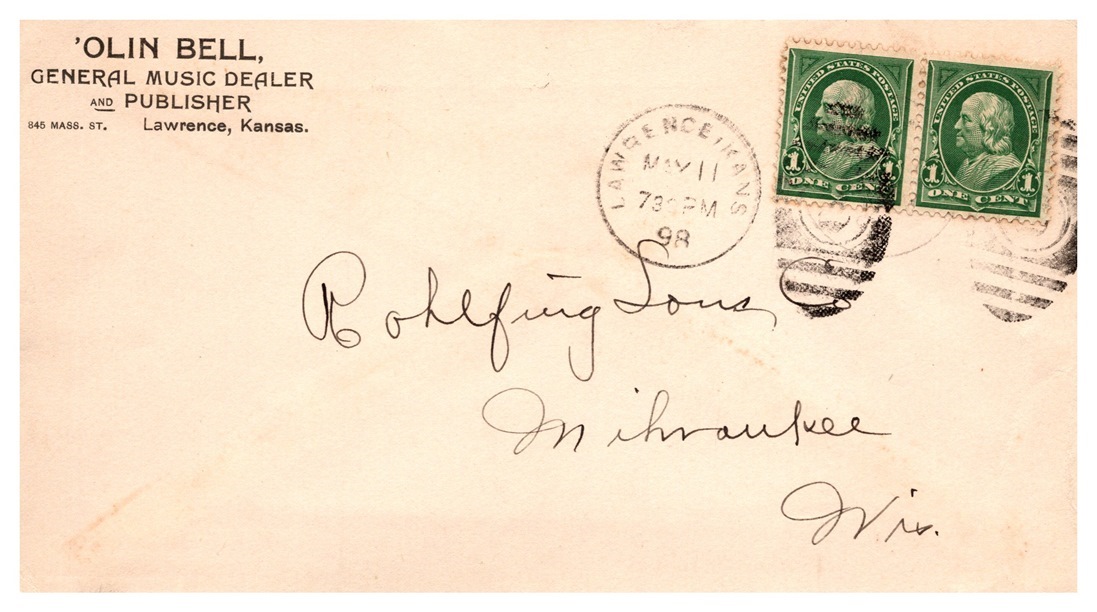 'OLIN BELL,
GENERAL MUSIC DEALER
AND PUBLISHER
845 MASS. ST. Lawrence, Kansas.
LAWRENCE, KANS
MAY 11
730 PM
98
UNITED STATES POSTAGE
1 1
ONE CENT
UNITED STATES POSTAGE
1 1
ONE CENT
Rohlfing Sons Co
Milwaukee
Wis.